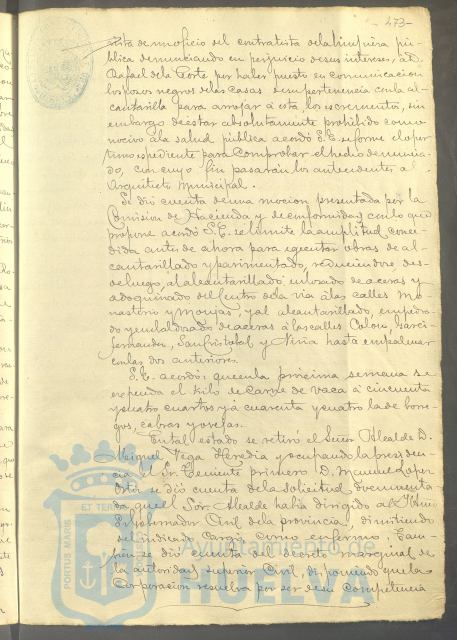 473
vista de un oficio del contratista de la limpieza pú-
blica denunciando en perjuicio de sus intereses, a D.
Rafael de la Corte por haber puesto en comunicacion
los pozos negros de las casas de su pertenencia con la al-
cantarilla para arrojar á esta los escrementos, sin
embargo de estar absolutamente prohibido como
nocivo á la salud pública acordó S.E. se forme el opor-
tuno espediente para comprobar el hecho denuncia-
do, con cuyo fin pasarán los antecedentes al
Arquitecto Municipal.
Se dió cuenta de una mocion presentada por la
Comision de Hacienda y de conformidad con lo que
propone acordó S.E. se limite la amplitud conce-
dida antes de ahora para egecutar obras de al-
cantarillado y pavimentado, reduciendose des-
de luego, al alcantarillado de aceras y
adoquinado del centro de la via á las calles Mo-
nasterio y Monjas, y al alcantarillado, empedra-
do y enchaldozado de aceras á las calles Colon, Garci-
fernandez, San Cristobal y Niña hasta empalmar
con las dos anteriores.
S.E. acordó: que en la próxima semana se
espenda el kilo de carne de vaca á cincuenta
y cuatro cuartos y á cuarenta y cuatro la de borre-
gos, cabras y ovejas.
En tal estado se retiró el Señor Alcalde D.
Miguel Vega Heredia y ocupando la presiden-
cia el Sr. Teniente primero D. Manuel Lopez
Ortiz se dió cuenta de la solicitud documenta-
da que el Sor. Alcalde habia dirigido al
Gobernador Civil de la provincia, dimitiendo
del indicado cargo como enfermo. Tam-
bien se dió cuenta del decreto marginal de
la autoridad superior Civil, disponiendo que la
Corporacion resuelva por ser de su competencia
Ayuntamiento de
HUELVA
PORTUS MARIS
ET TERRAE